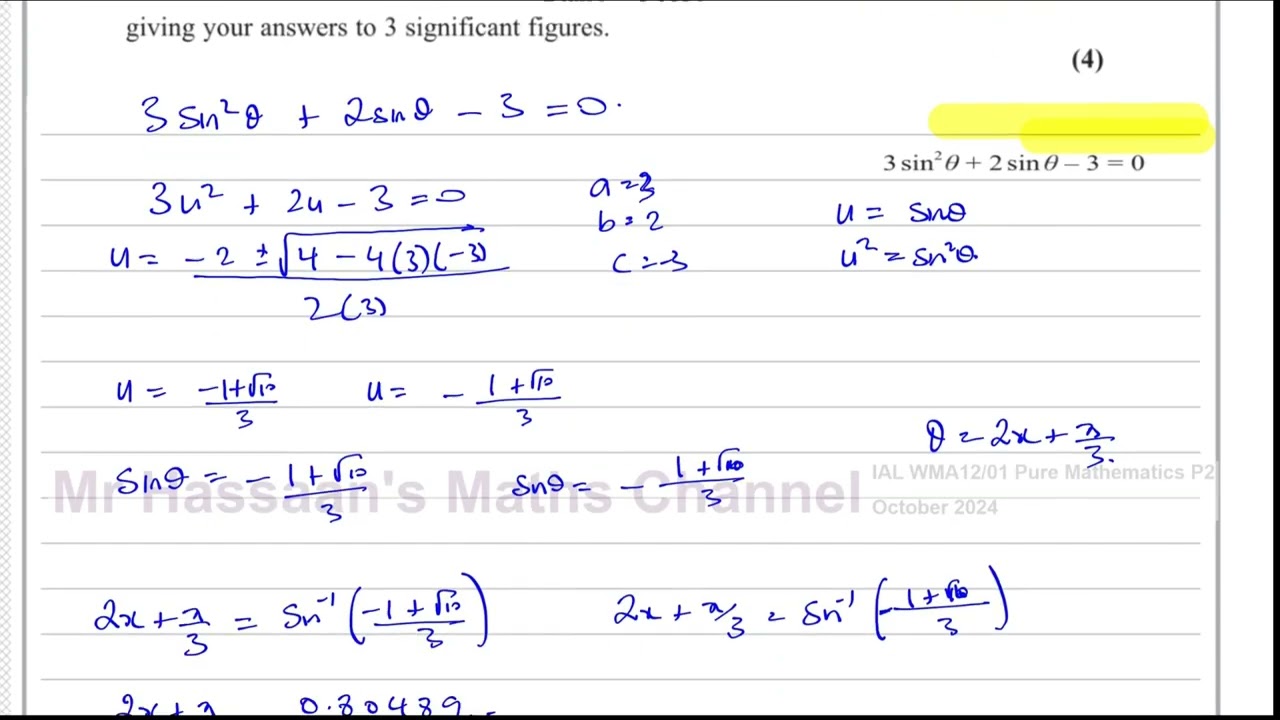 giving your answers to 3 significant figures.
(4)
3 sin²θ + 2 sinθ − 3 = 0.
3 sin²θ + 2 sin θ − 3 = 0
3u² + 2u − 3 = 0
a = 3
b = 2
c = −3
u = sinθ
u² = sin²θ
u = −2 ± √4 − 4(3)(−3)
2(3)
u = −1+√10 / 3 u = − 1+√10 / 3
θ = 2x + π/3.
sinθ = − 1+√10 / 3 sinθ = − 1+√10 / 3
Mr Hassaan's Maths Channel
IAL WMA12/01 Pure Mathematics P2
October 2024
2x + π/3 = sin⁻¹(−1+√10 / 3) 2x + π/3 = sin⁻¹(− 1+√10 / 3)
2x + π 0.80489